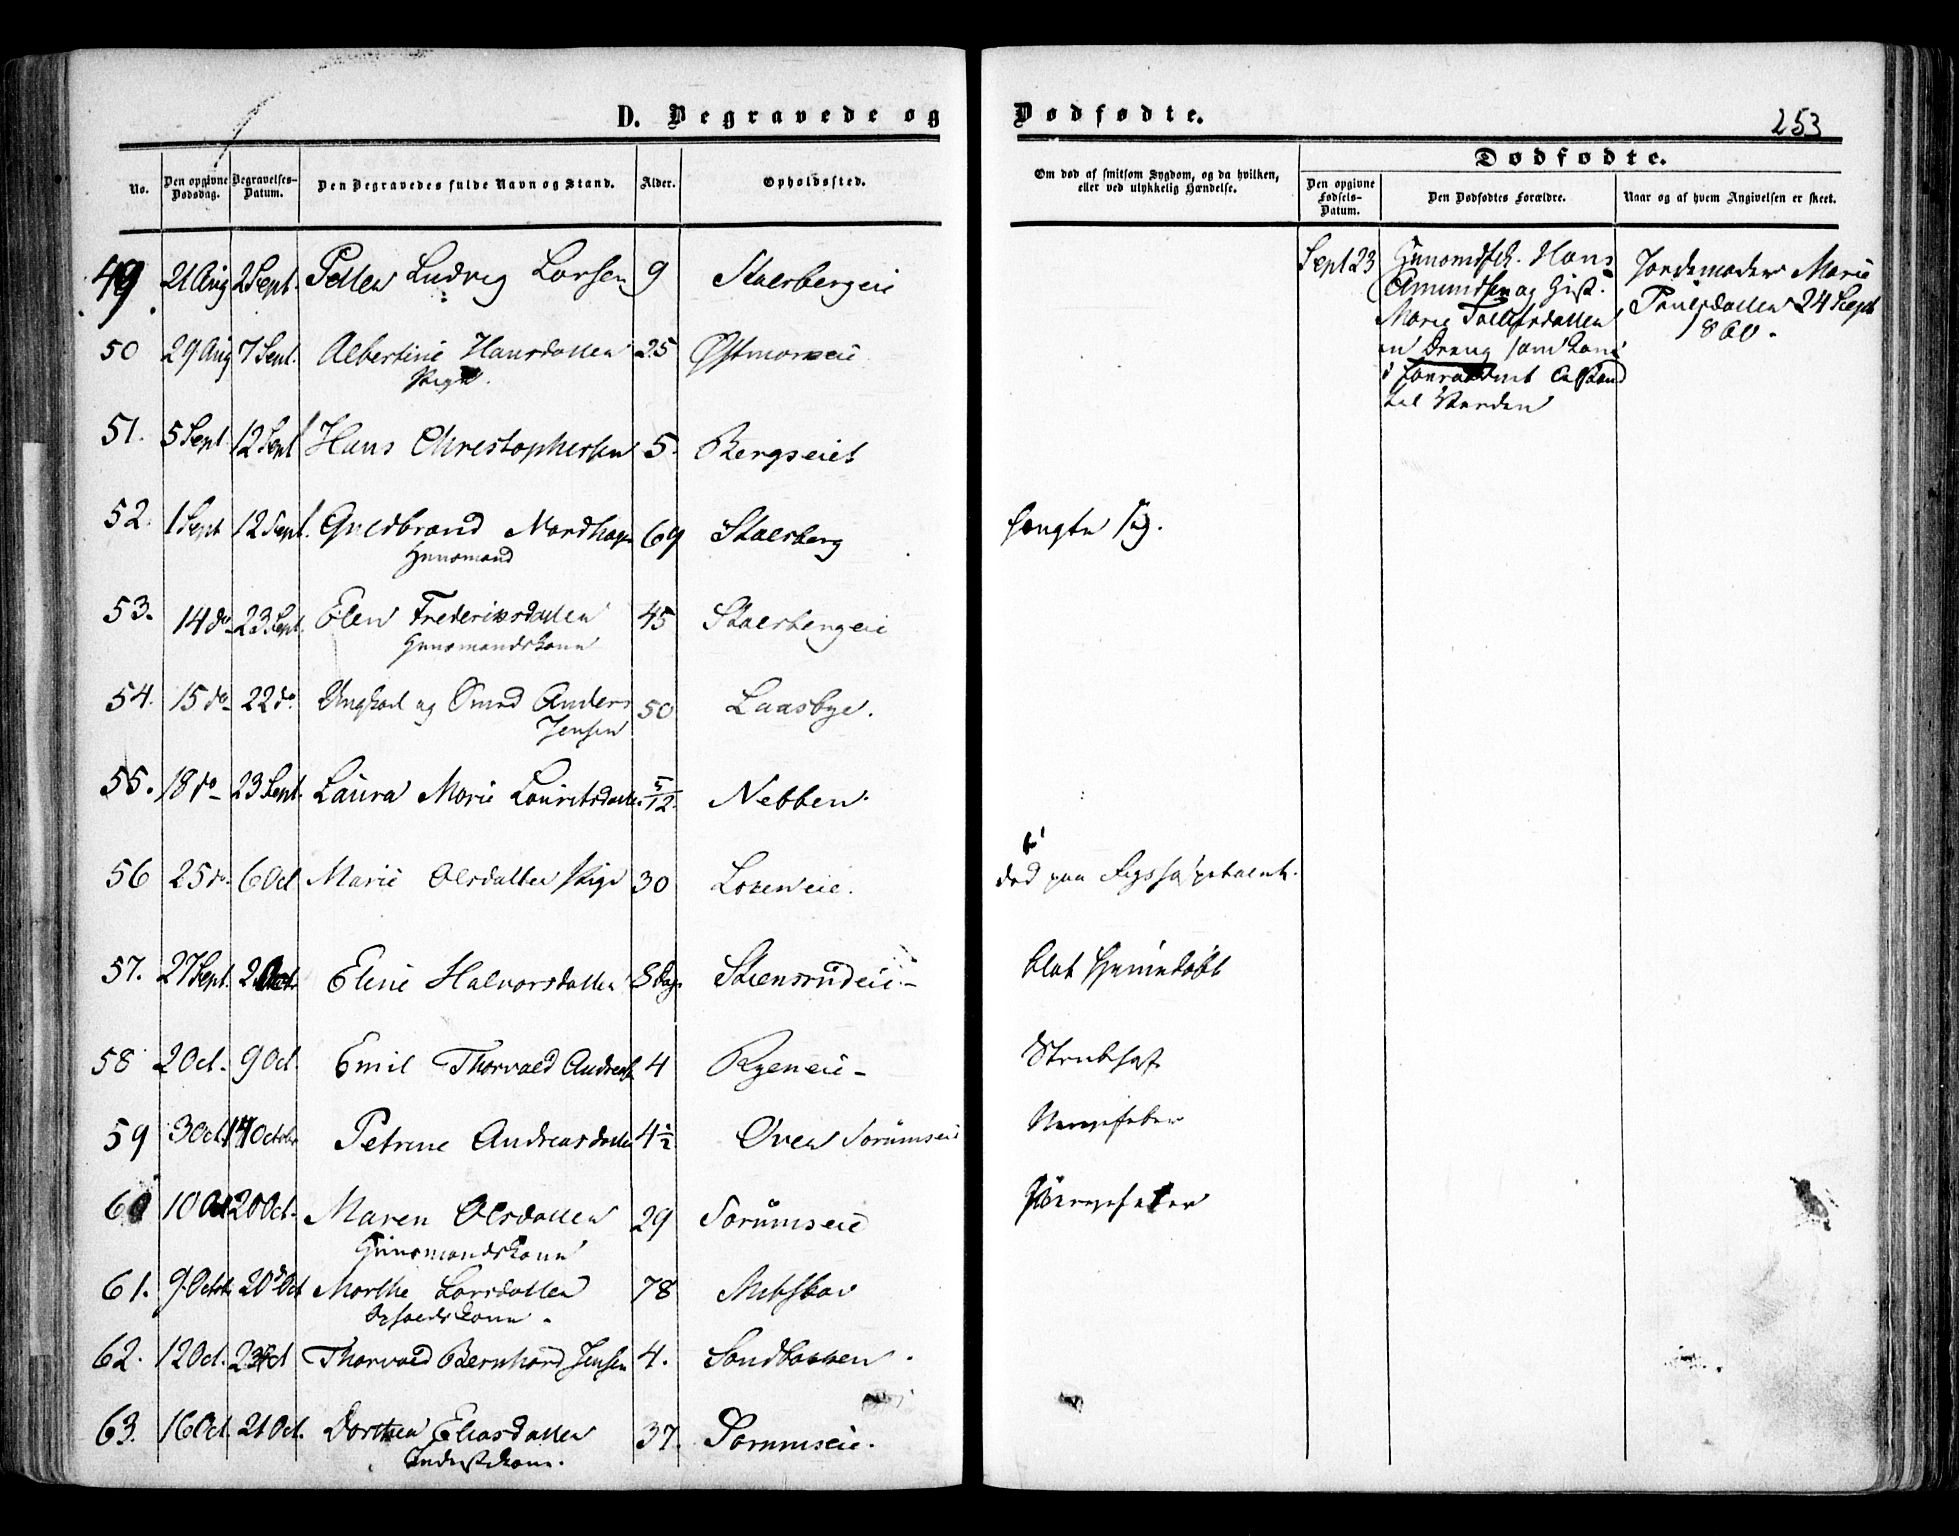 D. Begravede og Dødfødte.
253
Dødfødte.
No.
Den opgivne Dødsdag.
Begravelses-Datum.
Den Begravedes fulde Navn og Stand.
Alder.
Opholdssted.
Om død af smitsom Sygdom, og da hvilken, eller ved ulykkelig Hændelse.
Den opgivne Fødsels-Datum.
Den Dødfødtes Forældre.
Naar og af hvem Angivelsen er skeet.
49 21 Aug 2 Sept. Petter Ludvig Larsen 9
Sept 23 Huusmdsk. Hans
Amundsen og Hust.
Marie
en Dreng som kom
i
til Verden
Jordemoder Marie
Paulsdatter 24 Sept
1860.
50 29 Aug 7 Sept. Albertine Hansdatter 25
Pige.
51. 5 Sept. 12 Sept Hans Christophersen 5. Bergseiet
52. 1 Sept 12 Sept. Guldbrand Nordhagen 69 hængte sig.
Huusmand
53. 14 do 23 Sept. Elen Frederiksdatter 45
Huusmandskone
54. 15 do 22 do. Ungkarl og Smed Anders 50 Laasbye.
Jensen
55. 18 do 23 Sept. Laura Marie Lauritsdatter 5/12. Nebben.
56 25 do. 6 Oct Marie Olsdatter Pige 30
død paa Rigshospitalet.
57. 27 Sept. 2 Oct. Eline Halvorsdatter 8 Dage Steensrudeie
blot hjemmedøbt
58 2 Oct. 9 Oct. Emil Thorvald Andreas 4 Ryeneie
Strubehoste
59 3 Oct. 14 Octobr Petrine Andreasdatter 4½ Sørumseie
Nervefeber
60 10 Oct 20 Oct. Maren Olsdatter 29 Sørumseie
Huusmandskone
61. 9 Octob. 20 Oct Marthe Larsdatter 78 Mebskov
62. 12 Oct. 23 Oct Thorvald Bernhard Jensen 4. Sandbakken.
63. 16 Oct. 21 Oct. Dorthea Eliasdatter 37. Sørumseie.
Inderstekone.